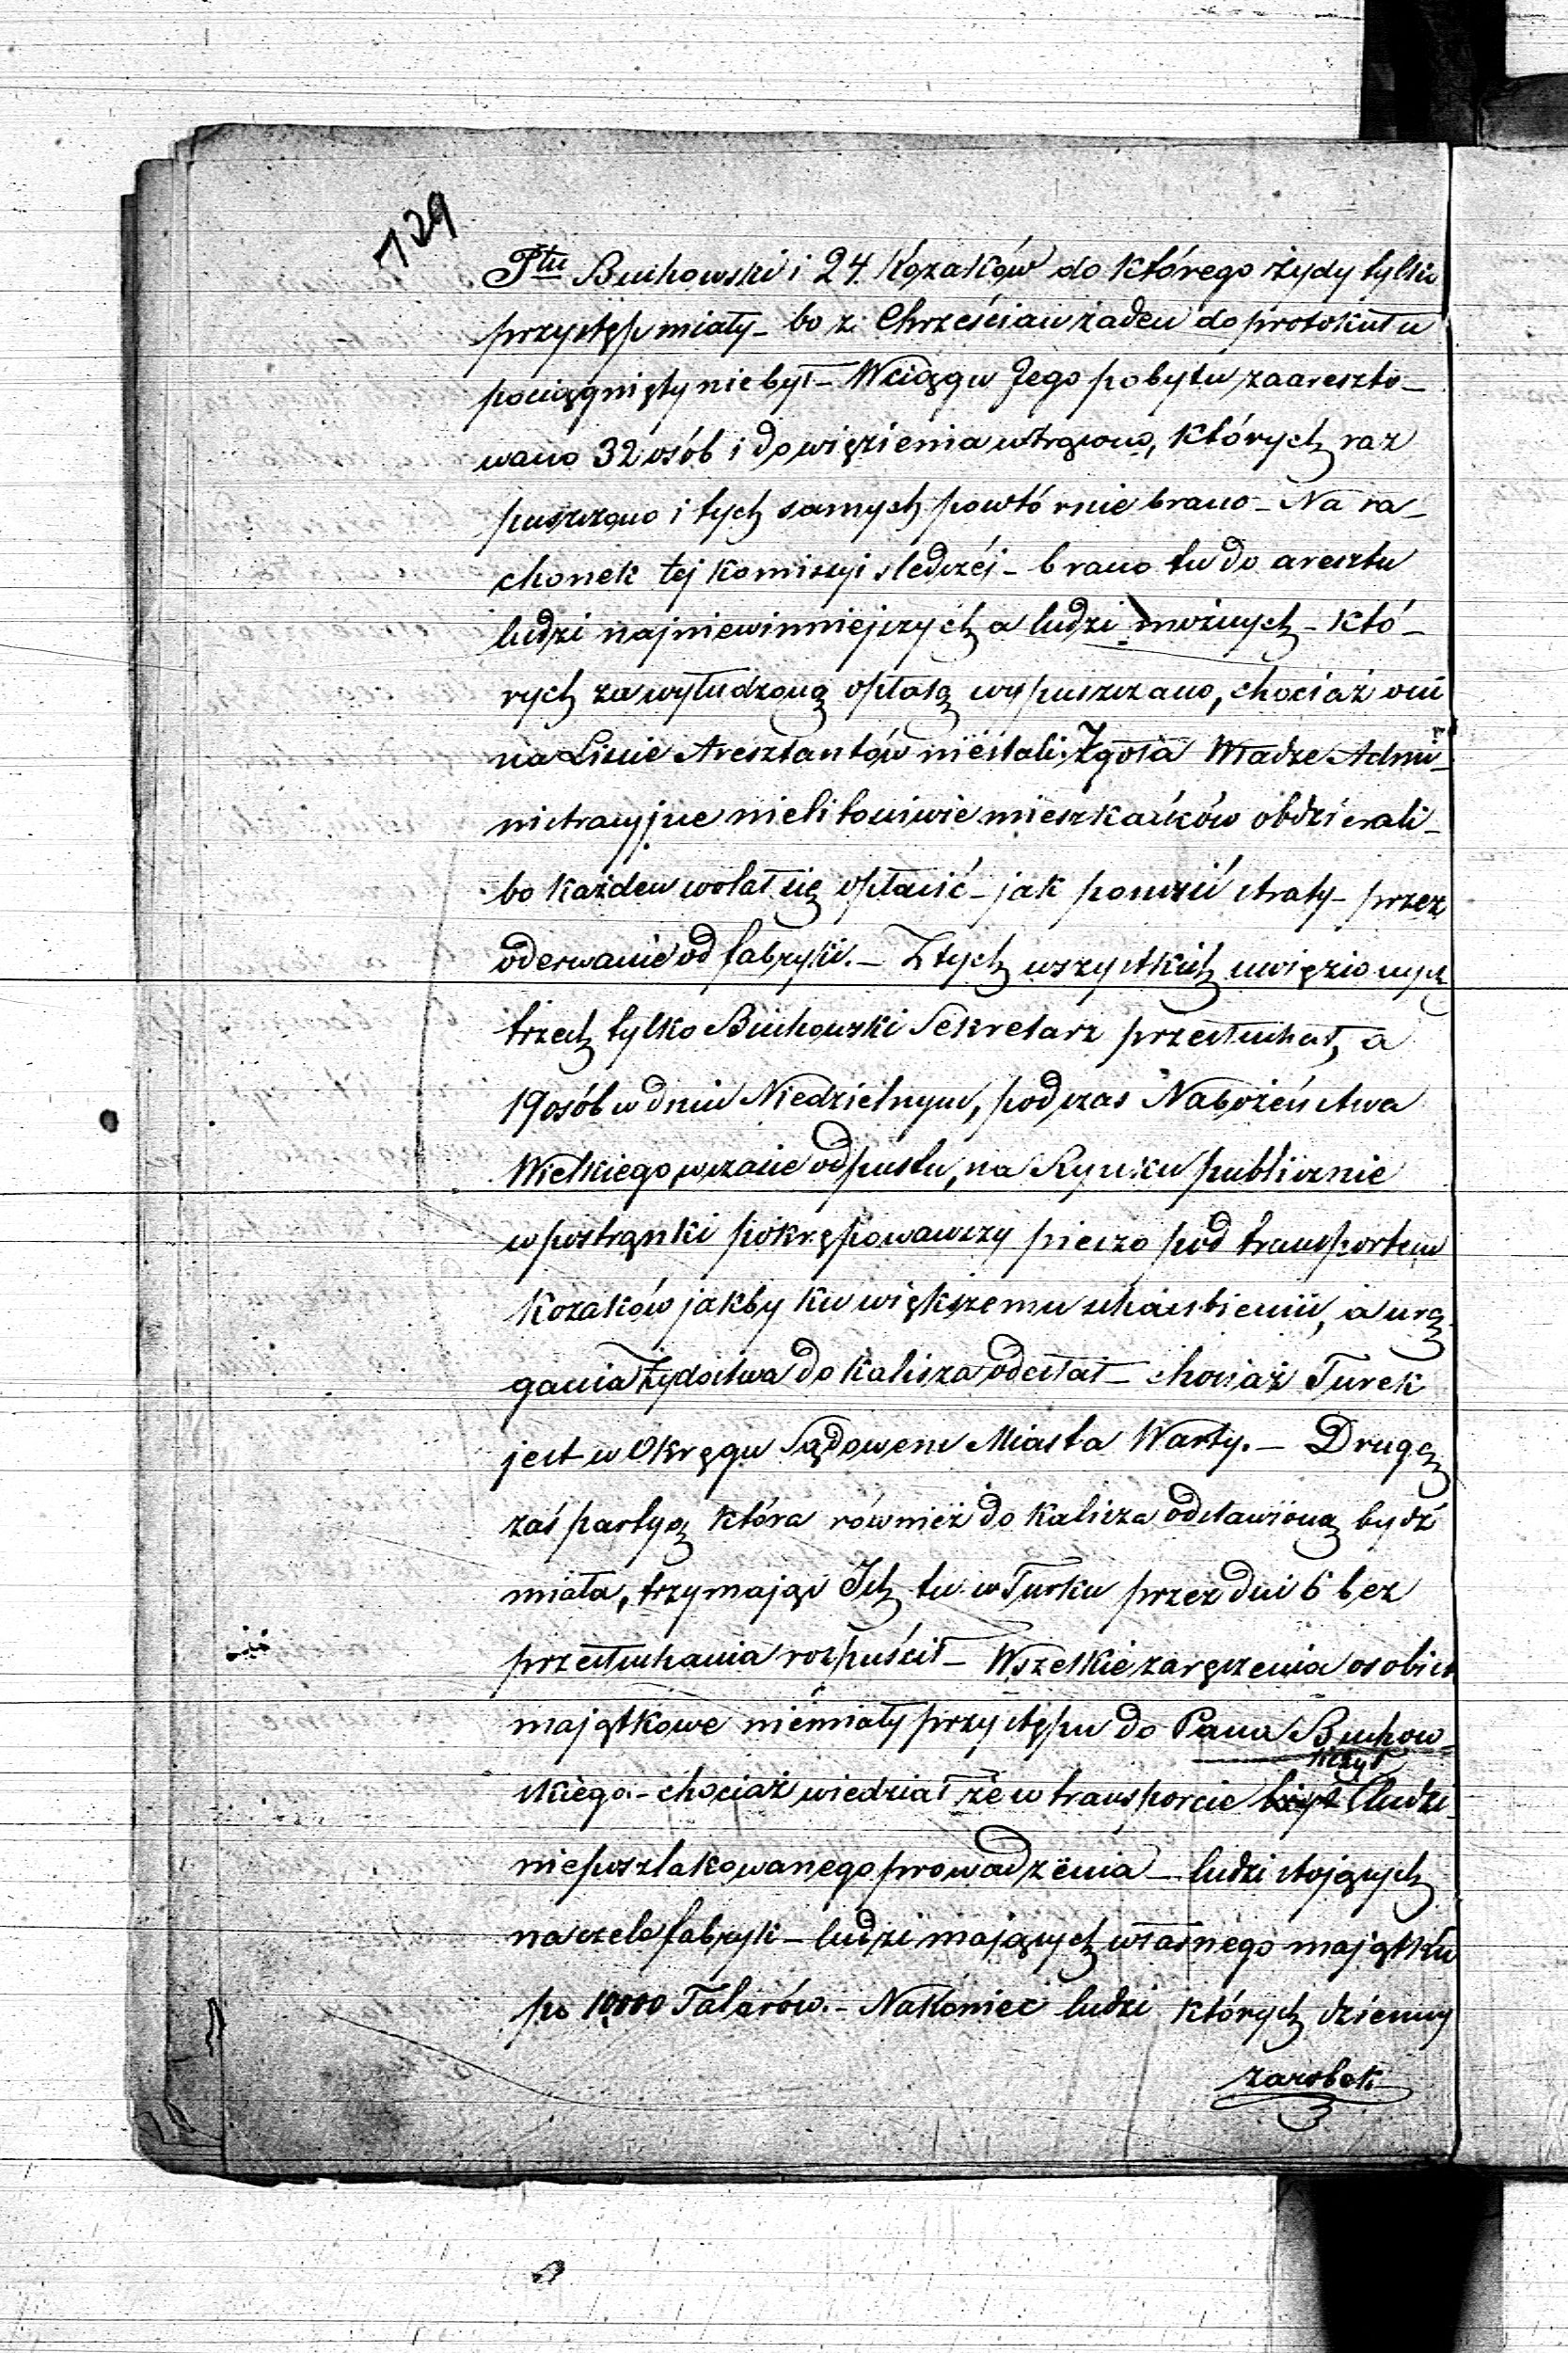 129
Ptu Buchowski i 24. Kozaków do którego żydy tylko
przystęp miały – bo z Chrześcian żaden do protokułu
pociągnięty nie był – W ciągu Jego pobytu zaareszto–
wano 32 osób i do więzienia wtrącono, których raz
puszczono i tych samych powtórnie brano – Na ra–
chonek tej Komissyi sledczéj – brano tu do aresztu
ludzi najniewinniejszych a ludzi możnych – któ–
rych za wyłudzoną opłatą wypuszczano, chociaż oni
na Liście Aresztantów niestali. Zgoła Władze Admi–
nistracyjne nielitościwie mieszkańców obdzierali –
bo każden wolał się opłacić – jak ponieść straty – przez
oderwanie od fabryki. – Z tych wszystkich uwięzionych
trzech tylko Buchowski Sekretarz przesłuchał, a
19 osób w dniu Niedzielnym, podczas Nabożeństwa
Wielkiego w czasie odpustu, na Rynku publicznie
w postronki pokrępowawszy pieszo pod transportem
Kozaków jakby ku większemu zhańbieniu, a urą–
gania Żydostwa do Kalisza odesłał – chociaż Turek
jest w Okręgu Sądowem Miasta Warty. – Drugą
zaś partyą która również do Kalisza odstawioną bydź
miała, trzymając Ich tu w Turku przez dni 6 bez
przesłuchania rozpuścił – Wszelkie zaręczenia osobist
majątkowe niemiały przystępu do Pana Buchow–
skiego – chociaż wiedział że w transporcie liczył ludzi
nieposzlakowanego prowadzenia – ludzi stojących
na czele fabryk – ludzi mających własnego majątku
po 10000 Talarów. – Nakoniec ludzi których dzienny
zarobek